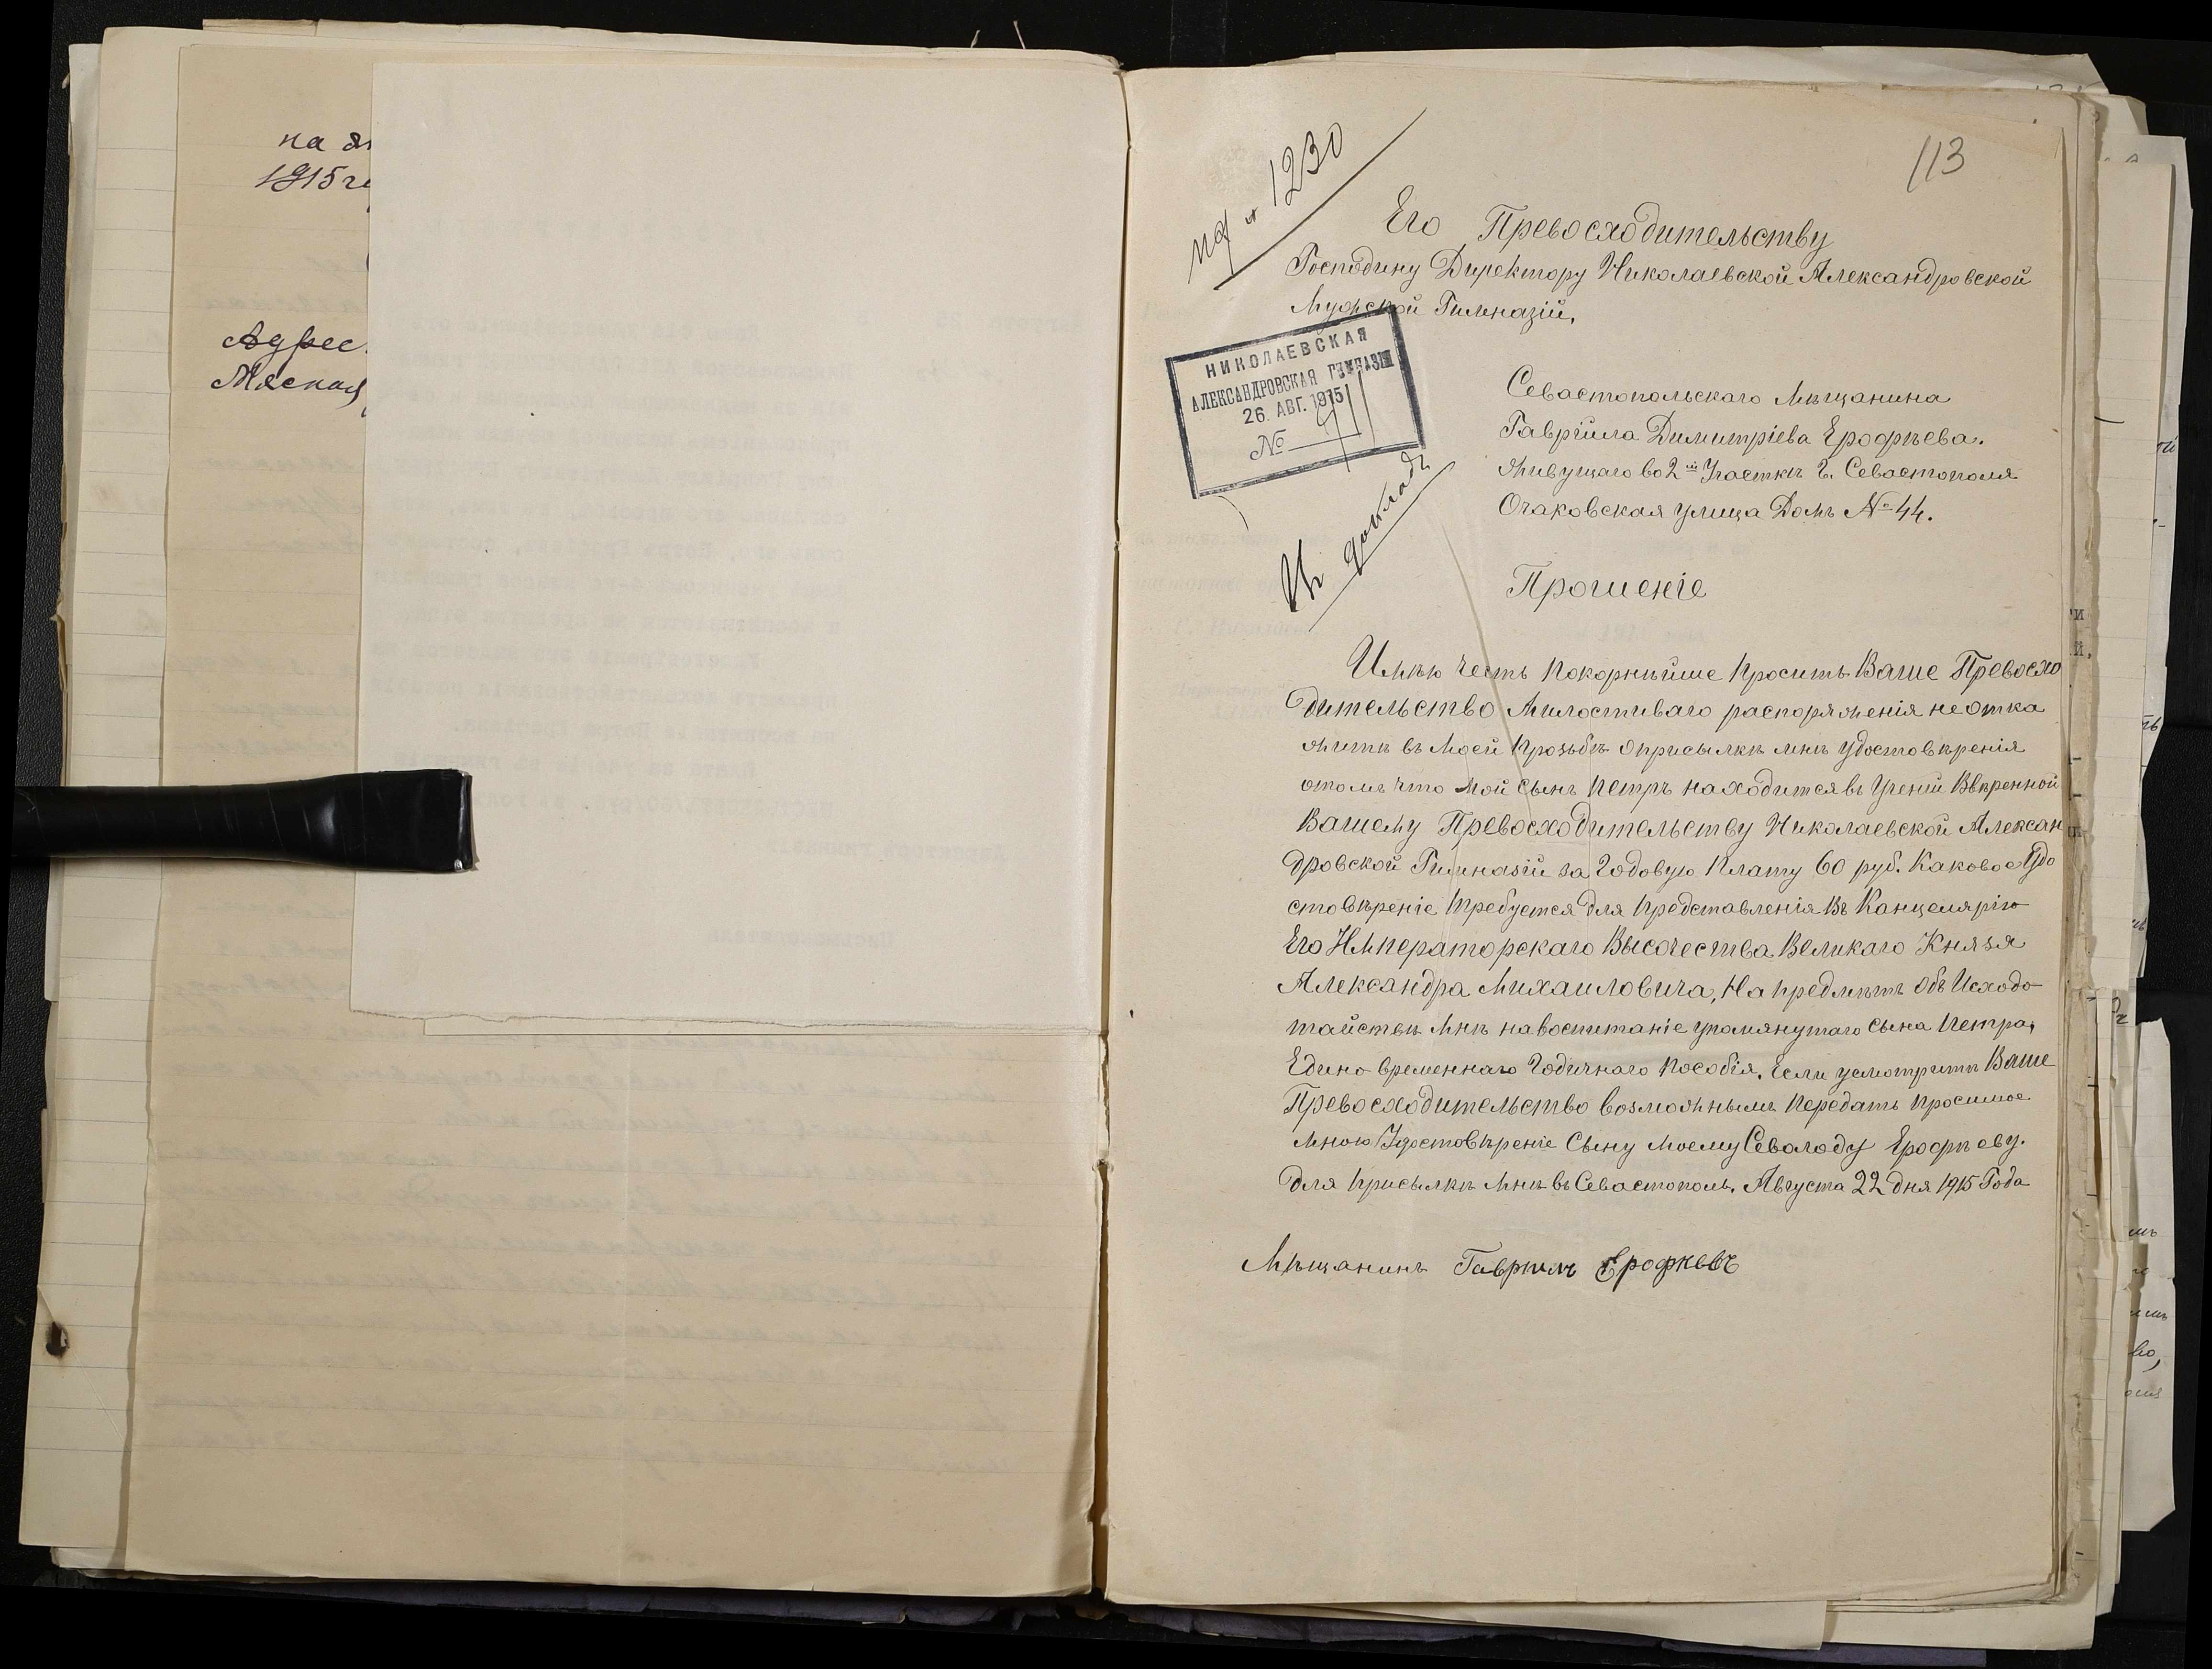 на
1915 г
Адрес.
Мяская
113
1230
Его Превосходительству
Господину Директору Николаевской Александровской
Мужской Гимназіи,
НИКОЛАЕВСКАЯ
АЛЕКСАНДРОВСКАЯ ГИМНАЗІЯ
26. АВГ. 1915
№
Севастопольскаго Мѣщанина
Гавріила Димитріева Ерофѣева.
Живущаго во 2ᵐ Участкѣ г. Севастополя
Очаковская улица Домъ № 44.
Къ докладу
Прошеніе
Имѣю честь покорнѣйше просить Ваше Превосхо
дительство Милостиваго распоряженія не отка
жить въ моей прозьбѣ о присылкѣ мнѣ удостовѣренія
отомъ что мой сынъ Петръ находится въ Ученіи Ввѣренной
Вашему Превосходительству Николаевской Алексан
дровской Гимназіи за годовую плату 60 руб. Каковое Удо
стовѣреніе требуется для представленія въ Канцелярію
Его Императорскаго Высочества Великаго Князя
Александра Михаиловича, на предмѣтъ объ Исходо-
тайствѣ мнѣ на воспитаніе упомянутаго сына Петра,
Едино временнаго годичнаго пособія. Если усмотритъ Ваше
Превосходительство возможнымъ передать просимое
мною Удостовѣреніе Сыну моему Севолоду Ерофѣеву.
для присылкѣ мнѣ въ Севастополь. Августа 22 дня 1915 Года
Мѣщанинъ Гавріилъ Ерофѣевъ